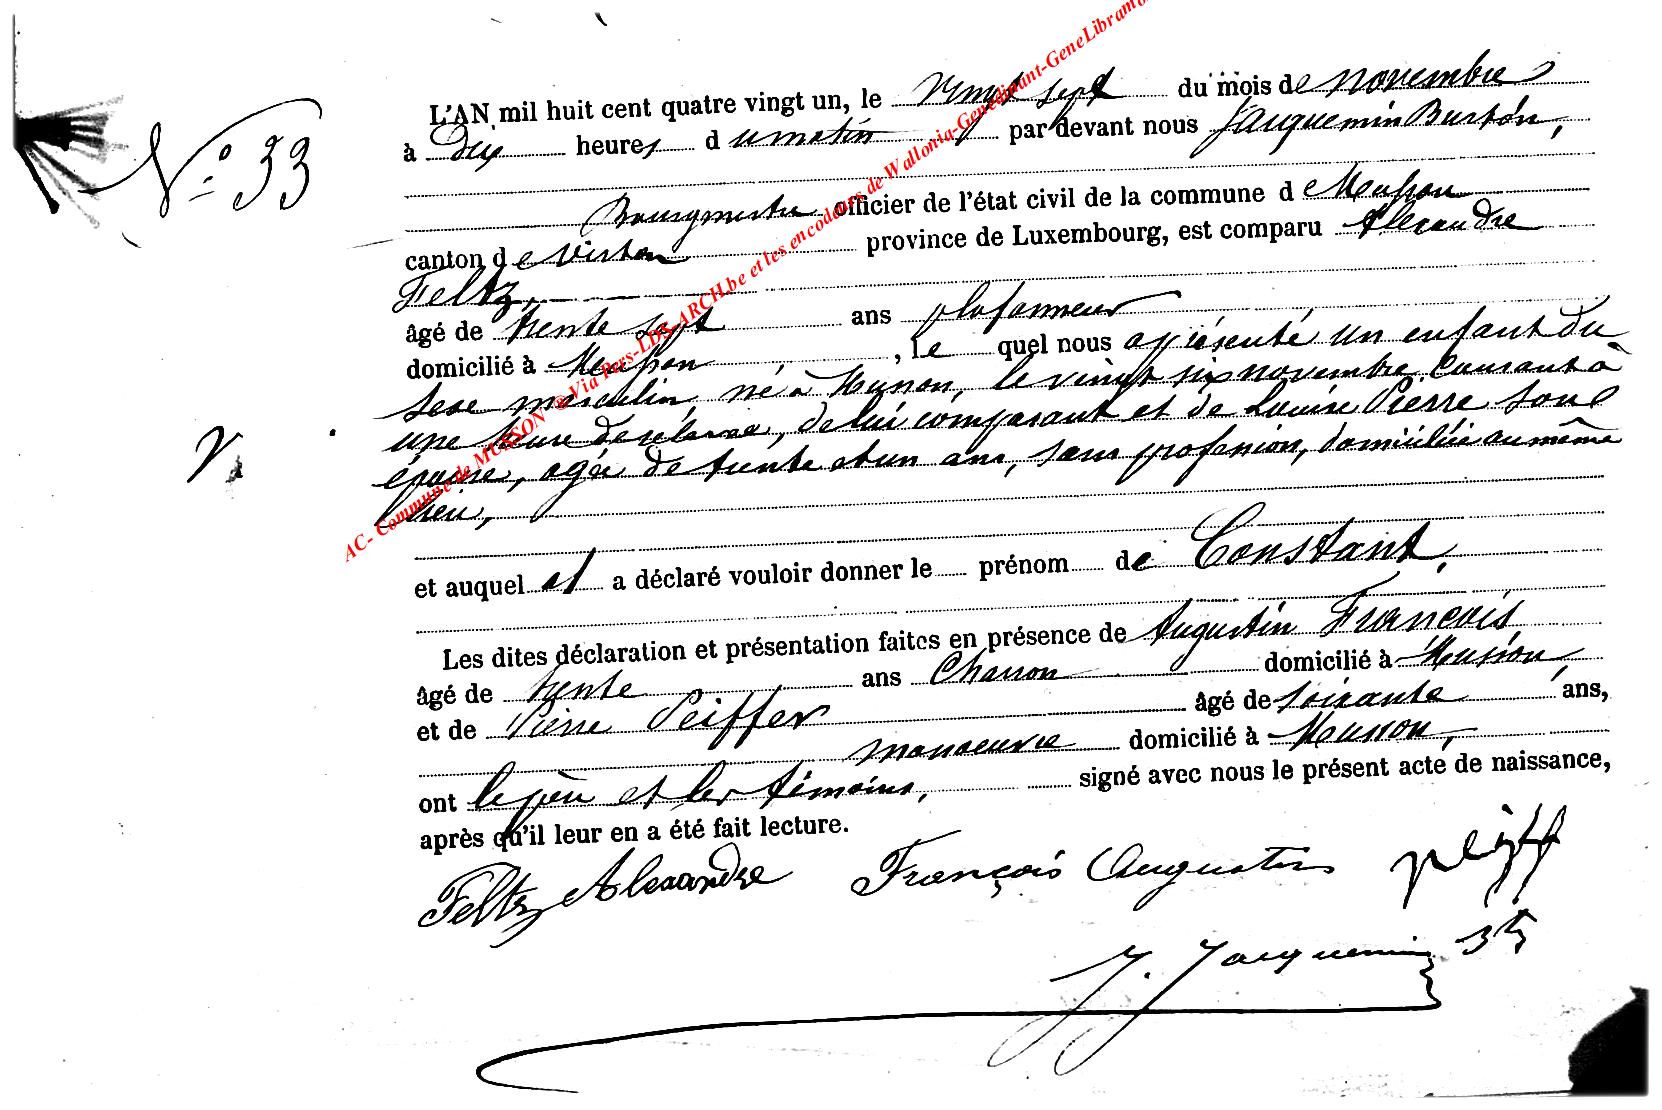 L'AN mil huit cent quatre vingt un, le vingt sept du mois de novembre
à dix heures du matin par devant nous Jacquemin Burton,
N° 33
Bourgmestre officier de l'état civil de la commune de Musson
canton de Virton province de Luxembourg, est comparu Alexandre
Feltz,
âgé de trente sept ans plafonneur
domicilié à Musson, le quel nous a présenté un enfant du
sexe masculin, né à Musson, le vingt six novembre courant à
une heure de relevée, de lui comparant et de Louise Pierre son
épouse, agée de trente et un ans, sans profession, domiciliée au même
lieu,
et auquel il a déclaré vouloir donner le prénom de Constant,
Les dites déclaration et présentation faites en présence de Augustin François
âgé de trente ans Charron domicilié à Musson,
et de Pierre Peiffer âgé de soixante ans,
manoeuvre domicilié à Musson,
ont le père et les témoins, signé avec nous le présent acte de naissance,
après qu'il leur en a été fait lecture.
Feltz Alexandre François Augustin Peiff
J. Jacquemin
AC- Commune de MUSSON @Via Pers-LDS-ARCH.be et les encodeurs de Wallonia-Genedinant-GeneLibramo